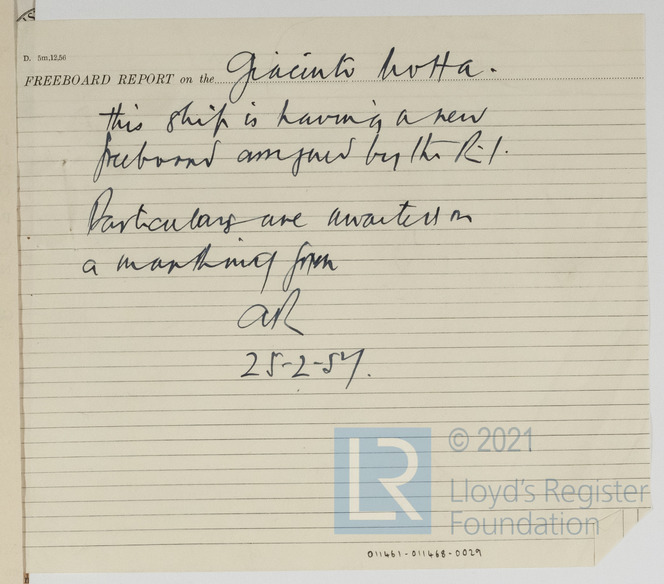 D. 5m,12,56
FREEBOARD REPORT on the Giacinto Motta.
This ship is having a new
freeboard assigned by the R.I.
Particulars are awaited on
a marking form
AR
25-2-57.
LR
© 2021
Lloyd's Register
Foundation
011461-011468-0029